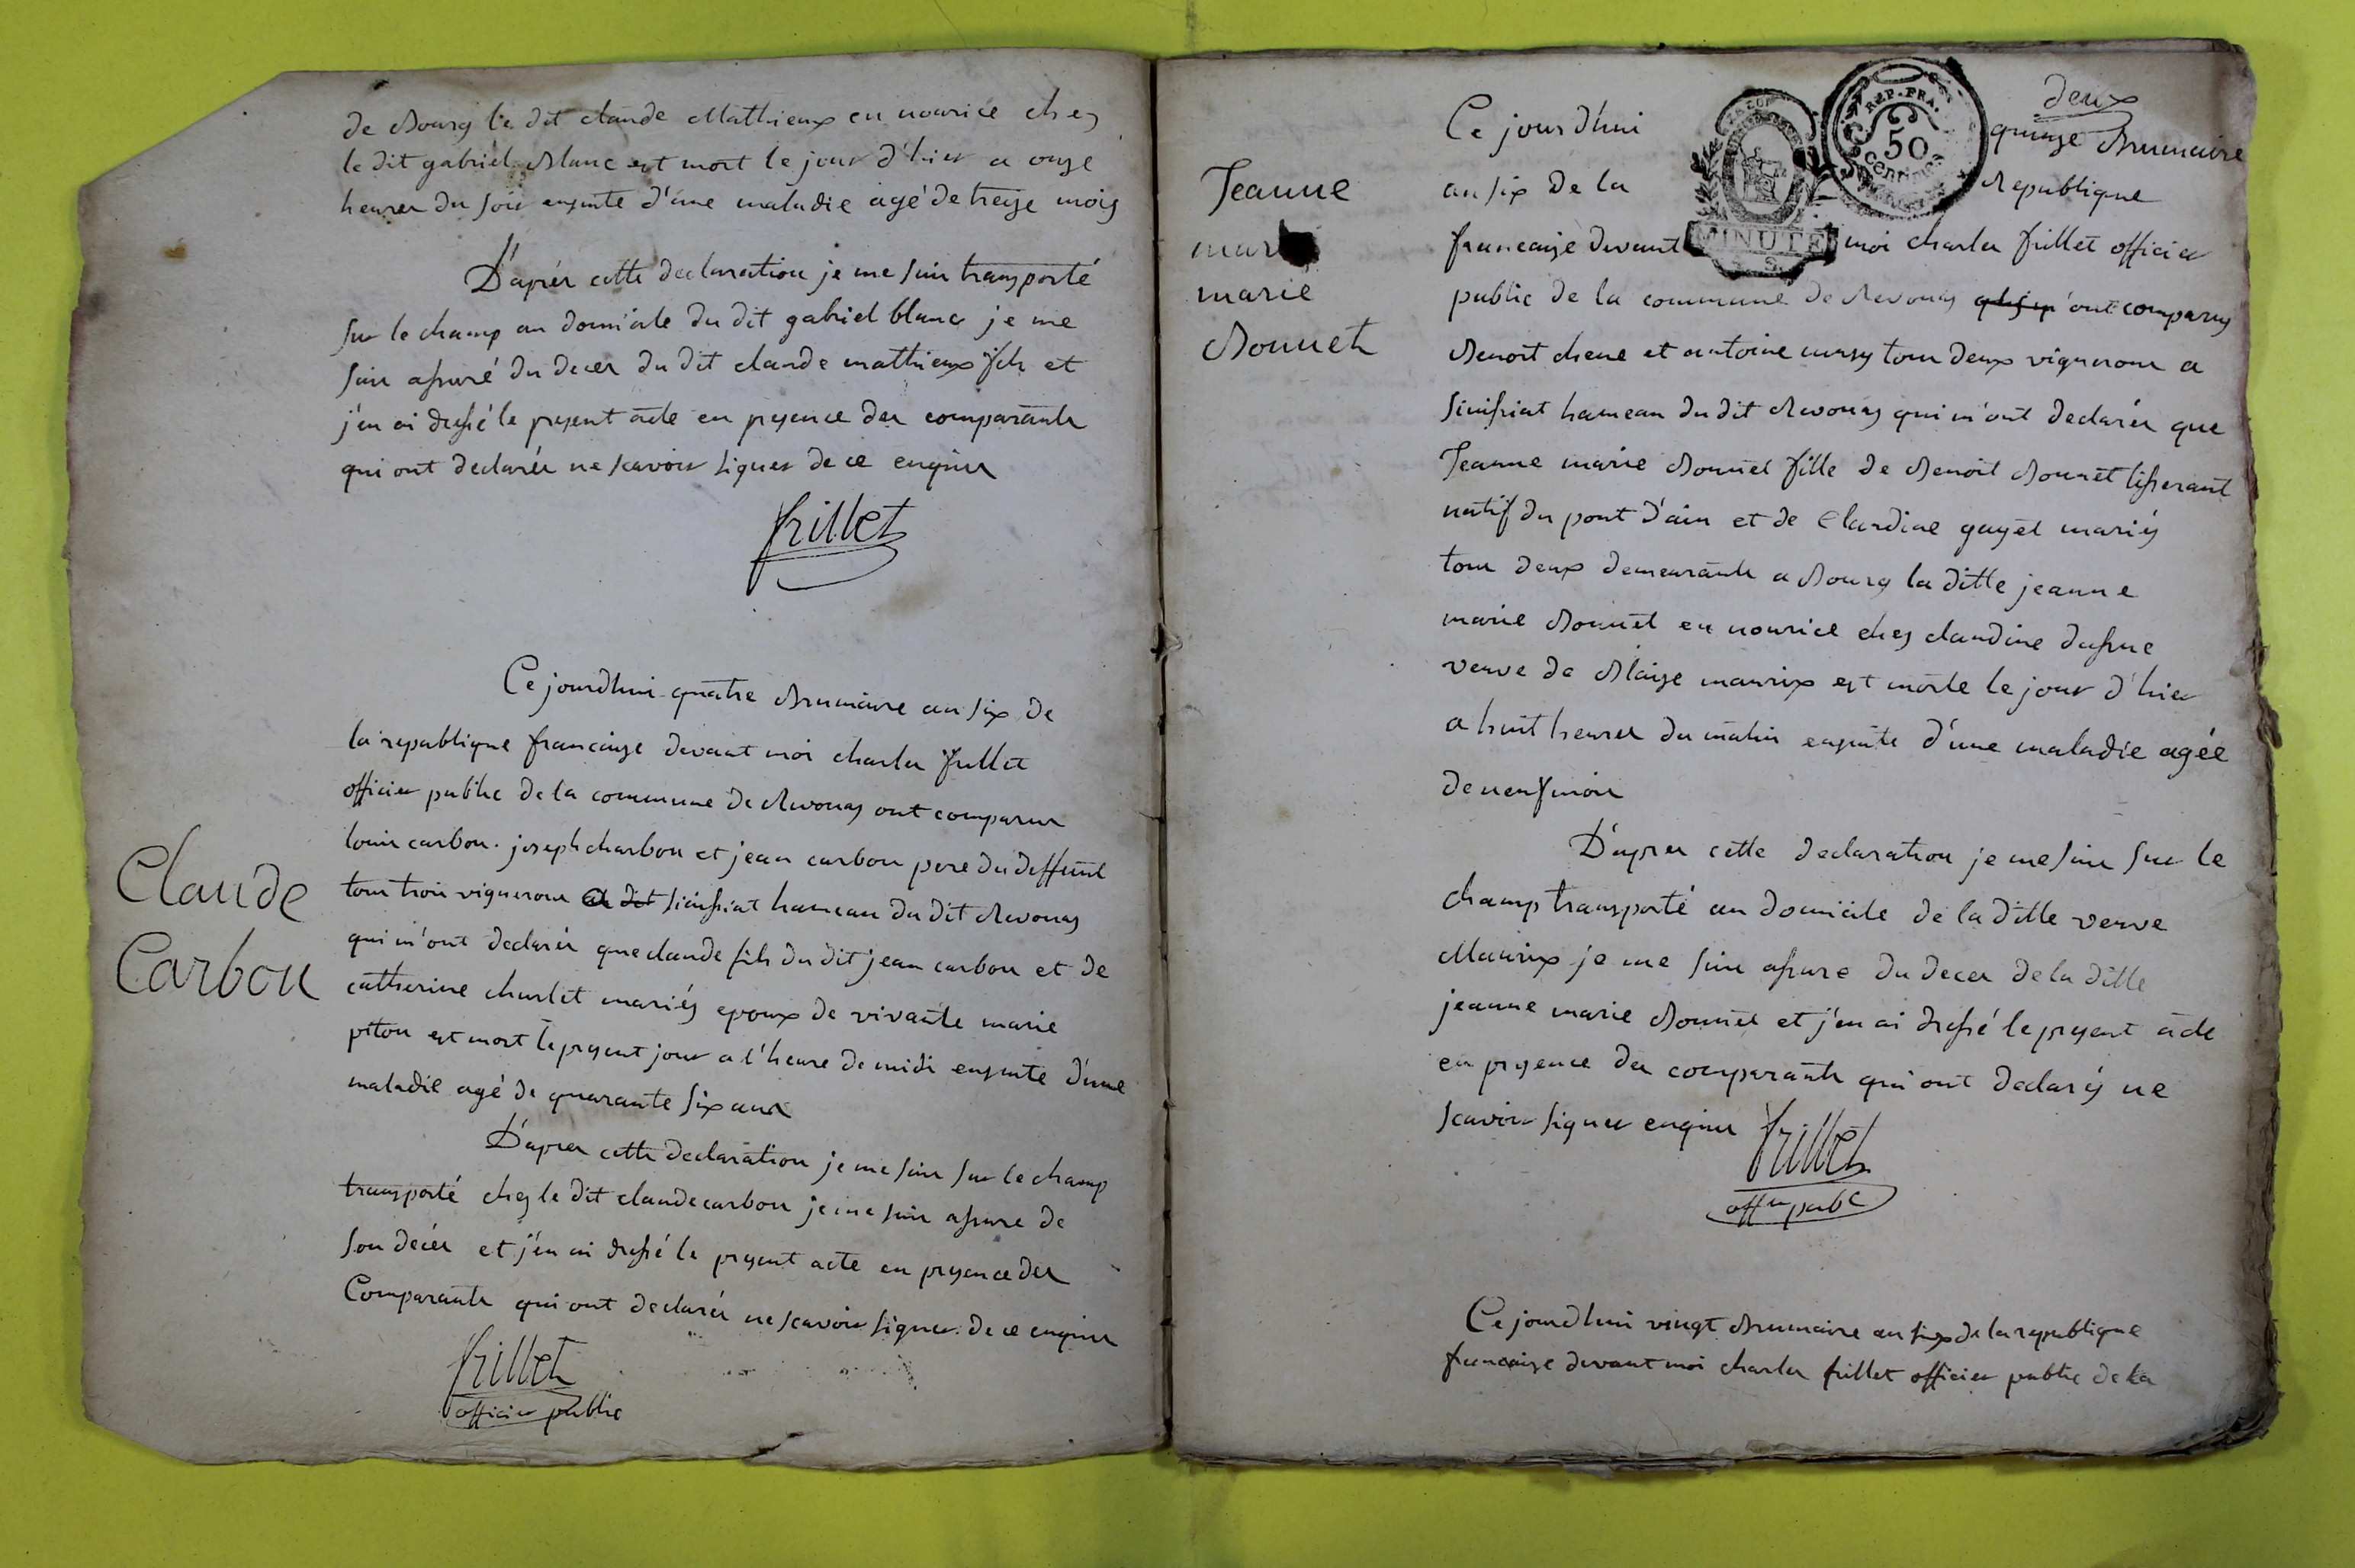 de Bourg le dit claude Mathieux en nourice chez
le dit gabriel Blanc est mort le jour d'hier a onze
heures du soir ensuite d'une maladie agé de treize mois
D'aprés cette declaration je me suis transporté
sur le champ au domicile du dit gabriel blanc je me
suis assuré du deces du dit claude mathieux fils et
j'en ai dressé le present acte en presence des comparants
qui ont declarés ne scavoir signer de ce enquis
frillet
Ce jourdhui quatre Brumaire an six de
la republique francaise devant moi charles frillet
officier public de la commune de Revonas ont comparus
Claude
Carbon
louis carbon. joseph charbon et jean carbon pere du deffunt
tous trois vignerons a dit sinissiat hameau du dit Revonas
qui m'ont declarés que claude fils du dit jean carbon et de
catherine charlet mariés epoux de vivante marie
piton est mort le present jour a l'heure de midi ensuite d'une
maladie agé de quarante six ans
D'apres cette declaration je me suis sur le champ
transporté chez le dit claude carbon je me suis assure de
son decés et j'en ai dressé le present acte en presence des
Comparants qui ont declarés ne scavoir signer. de ce enquis
frillet
officier public
deux
REP. FRA.
50
centimes
MINUTE
Ce jourd'hui quinze Brumaire
an six de la Republique
Jeanne
marie
Bonnet
francaise devant moi charles frillet officier
public de la commune de Revonas ont comparus
Benoit chene et antoine tous deux vignerons a
sinissiat hameau du dit Revonas qui m'ont declarés que
Jeanne marie Bonnet fille de Benoit Bonnet tisserant
natif du pont d'ain et de Claudine guyet mariés
tous deux demeurants a Bourg la ditte jeanne
marie Bonnet en nourice chez claudine
veuve de Blaise maurix est morte le jour d'hier
a huit heures du matin ensuite d'une maladie agée
de neuf mois
D'apres cette declaration je me suis sur le
champ transporté au domicile de la ditte veuve
Maurix je me suis assure du deces de la ditte
jeanne marie Bonnet et j'en ai dressé le present acte
en presence des comparants qui ont declarés ne
scavoir signer enquis frillet
offer pubc
Ce jourdhui vingt Brumaire an six de la republique
francaise devant moi charles frillet officier public de la